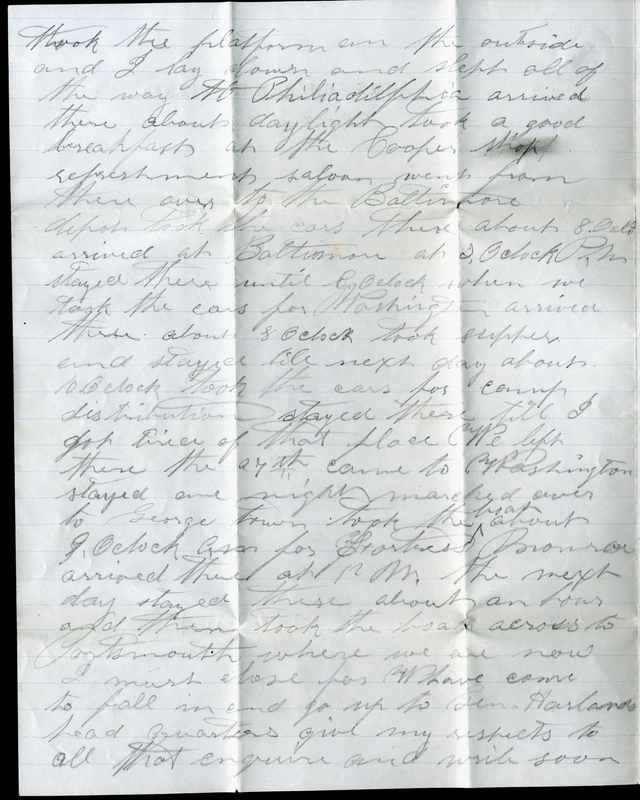 took the platform on the outside
and I lay down and slept all of
the way to Philiadilphia arrived
there about daylight took a good
breakfast at the Cooper shop
refreshment saloon went from
there over to the Baltimore
depot took the cars there about 8 Oclk
arrived at Baltimore at 2 Oclock P.M
stayed there until 6 Oclock when we
took the cars for Washington arrived
there about 8 Oclock took supper
and stayed till next day about
10 Oclock took the cars for camp
distribution stayed there till I
got tired of that place We left
there the 27th came to Washington
stayed one night marched over
to George town took the boat about
9 Oclock am for Fortress Monroe
arrived there at M. the next
day stayed there about an hour
and then took the boat across to
Portsmouth where we are now
I must close for We have come
to fall in and go up to Gen. Harlands
head quarters give my respects to
all that enquire and write soon